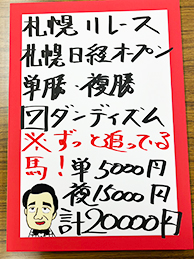 札幌11レース
札幌日経オープン
単勝・複勝
7ダンディズム
※ずっと追ってる
馬!単5000円
複15000円
計20000円